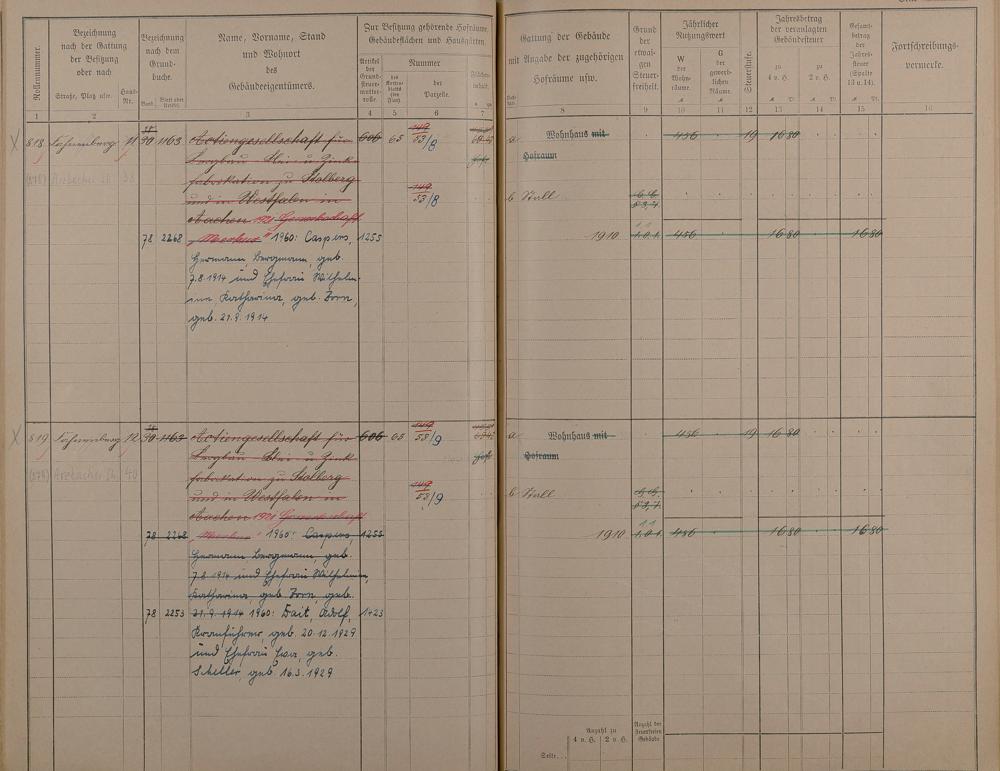 Rollennummer.
Bezeichnung
nach der Gattung
der Besitzung
oder nach
Straße, Platz usw.
Haus-
Nr.
Bezeichnung
nach dem
Grund-
buche.
Band
Blatt oder
Artikel.
Name, Vorname, Stand
und Wohnort
des
Gebäudeeigentümers.
Zur Besitzung gehörende Hofräume,
Gebäudeflächen und Hausgärten.
Artikel
der
Grund-
steuer-
mutter-
rolle.
Nummer
des
Karten-
blattes
(der
Flur)
der
Parzelle.
Flächen-
inhalt.
Gattung der Gebäude
mit Angabe der zugehörigen
Hofräume usw.
Grund
der
etwai-
gen
Steuer-
freiheit.
Jährlicher
Nutzungswert
W
der
Wohn-
räume.
G
der
gewerb-
lichen
Räume.
Steuerstufe.
Jahresbetrag
der veranlagten
Gebäudesteuer
zu
4 v. H.
zu
2 v. H.
Gesamt-
betrag
der
Jahres-
steuer
(Spalte
13 u. 14).
Fortschreibungs-
vermerke.
1 2 3 4 5 6 7 8 9 10 11 12 13 14 15 16
818 Fahnenberg 11 30 1163 Actiengesellschaft für 606 65 149 53/8 a Wohnhaus mit 456 19 16 80
Bergbau Blei- u Zink Hofraum
(678) Arzbacher St. 38 fabrikation zu Stolberg
und in Westfalen in 149 53/8 b Stall
Aachen 1921 Gewerkschaft
78 2268 „Merkur" 1960: Caspers, 1255 1910 456 16 80 16 80
Hermann, Bergmann, geb.
7.8.1914 und Ehefrau Wilhelm-
ine Katharina, geb. Zorn,
geb. 21.9.1914
819 Fahnenberg 12 30 1163 Actiengesellschaft für 606 65 149 53/9 a Wohnhaus mit 456 19 16 80
Bergbau Blei- u Zink Hofraum
(679) Arzbacher St. 40 fabrikation zu Stolberg
und in Westfalen in 149 53/9 b Stall
Aachen 1921 Gewerkschaft
78 2268 „Merkur" 1960: Caspers 1255 1910 456 16 80 16 80
Hermann, Bergmann, geb.
7.8.1914 und Ehefrau Wilhelmine,
Katharina, geb. Zorn, geb.
78 2253 21.9.1914 1960: Dait, Adolf, 1423
Kranführer, geb. 20.12.1929
und Ehefrau Eva, geb.
Scheller, geb. 16.3.1929
Anzahl zu
4 v. H. 2 v. H.
Anzahl der
steuerfreien
Gebäude
Seite...